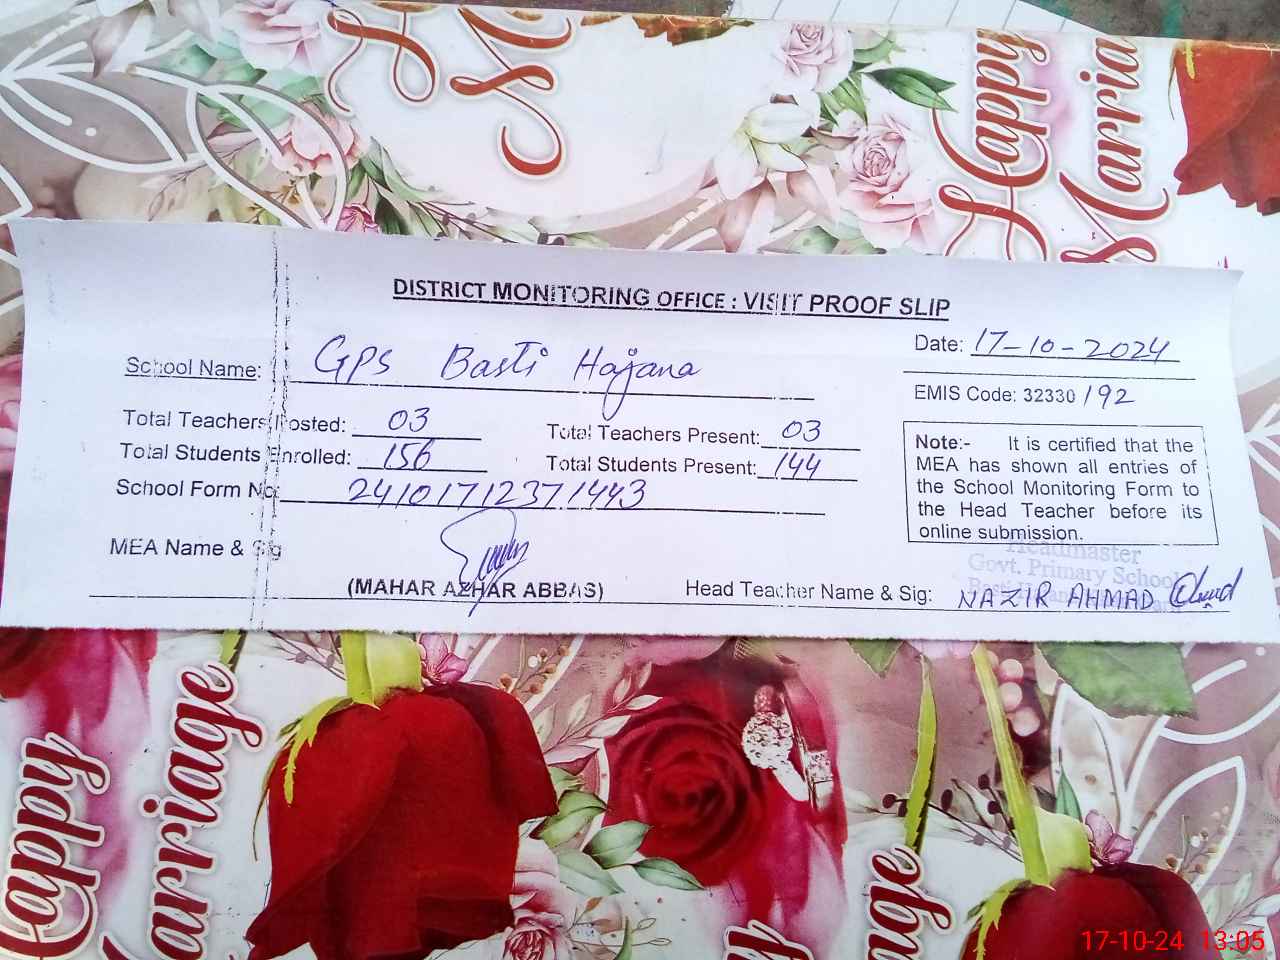 Happy
Marria
DISTRICT MONITORING OFFICE : VISIT PROOF SLIP
Date: 17-10-2024
School Name: GPS Basti Hajana
EMIS Code: 32330192
Total Teachers Posted: 03 Total Teachers Present: 03
Total Students Enrolled: 156 Total Students Present: 144
School Form No: 24101712371443
Note:- It is certified that the
MEA has shown all entries of
the School Monitoring Form to
the Head Teacher before its
online submission.
MEA Name & Sig
(MAHAR AZHAR ABBAS)
Head Teacher Name & Sig: NAZIR AHMAD
Headmaster
Govt. Primary School
Happy
Marriage
17-10-24 13:05